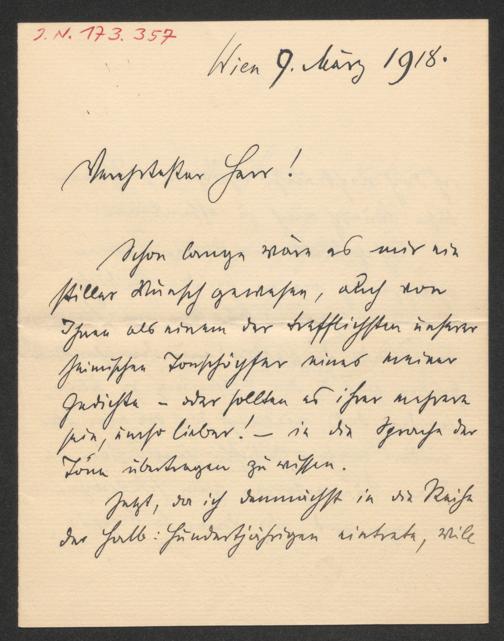 J. N. 173.357
Wien 9. März 1918.
Verehrtester Herr!
Schon lange wäre es mir ein
stiller Wunsch gewesen, auch von
Ihnen als einem der trefflichsten unserer
heimischen Tonschöpfer eines meiner
Gedichte – oder sollten es ihrer mehrere
sein, umso lieber! – in die Sprache der
Töne übertragen zu wissen.
Jetzt, da ich demnächst in die Reihe
der Halb:hundertjährigen eintrete, will